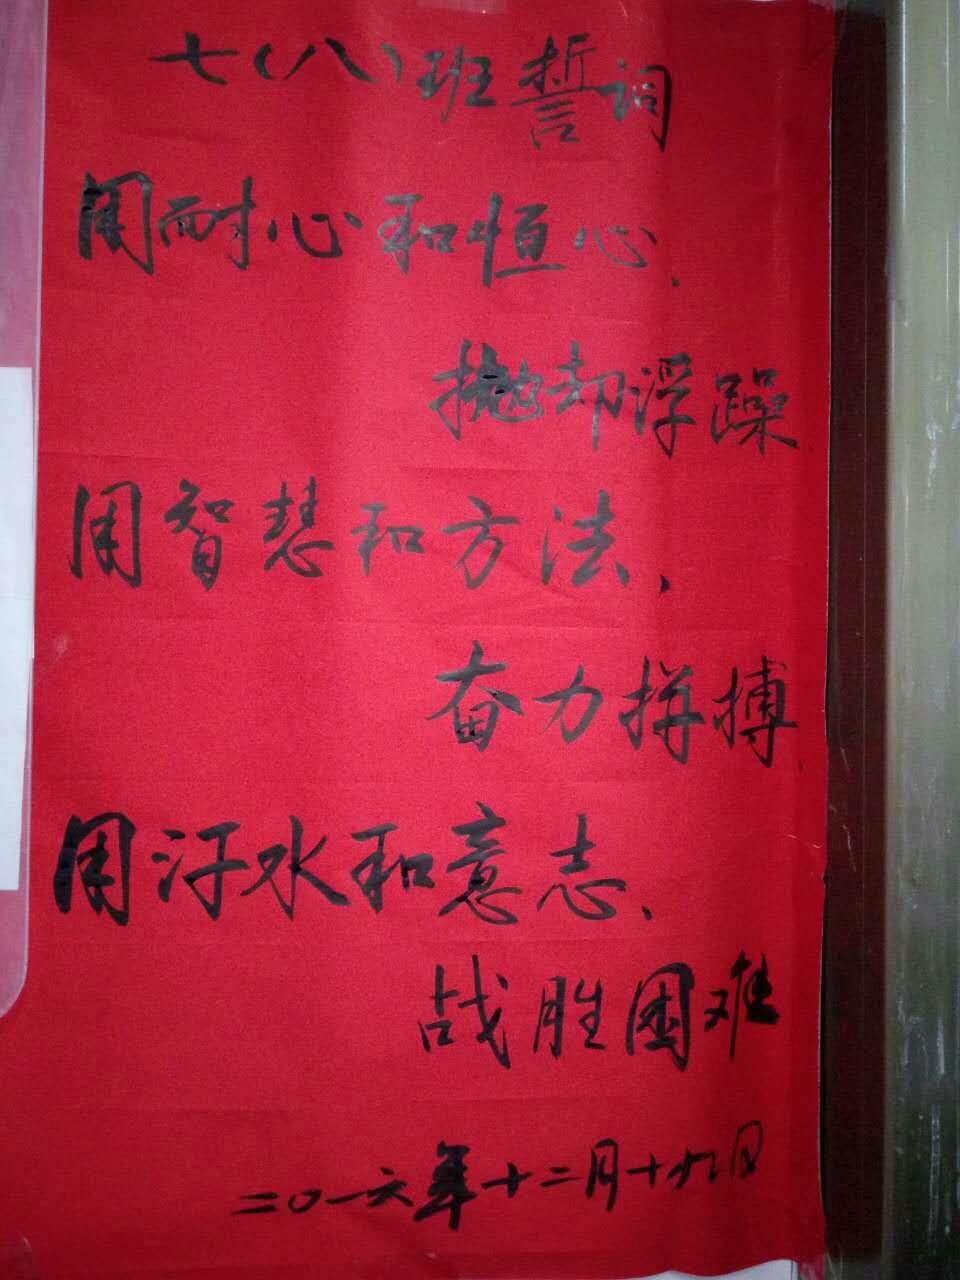 七(八)班誓词
用耐心和恒心、
抛却浮躁
用智慧和方法、
奋力拼搏
用汗水和意志、
战胜困难
二〇一六年十二月十九日